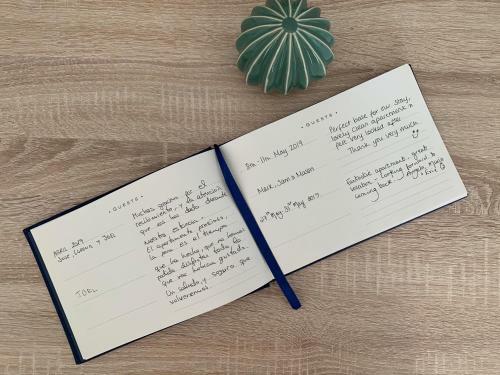 · GUESTS ·
ABRIL 2019
JOSE, Y JOEL
JOEL
Muchas gracias por el
recibimiento, y la atención
que nos has dado durante
nuestra estancia.
El apartamento precioso,
la pena es el tiempo
que ha hecho, que no hemos
podido disfrutar todo lo
que nos hubiera gustado.
Un saludo, y seguro, que
volveremos.
· GUESTS ·
8th - 11th May 2019
Mark, Jam & Mason
27th May 31st May 2019
Perfect base for our stay,
lovely clean apartment &
felt very looked after
Thank you very much
Fantastic apartment, great
location. Looking forward to
coming back. Angela, Maria